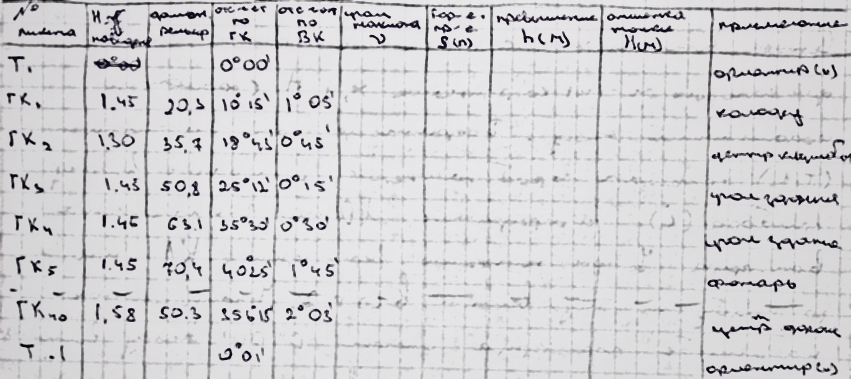 № пикета отсчет по ГК отсчет по ВК угол наклона ν S(м) превышение h(м) отметка точки H(м) примечание
Т. 0°00' 0°00' ориентир(ы)
ГК₁ 1.45 20,3 10°15' 1°05' колодец
ГК₂ 1.30 35,7 18°43' 0°45' центр
ГК₃ 1.45 50,8 25°12' 0°15' угол здания
ГК₄ 1.45 63.1 35°30' 0°30' угол здания
ГК₅ 1.45 70,4 40°25' 1°45' фонарь
ГК₁₀ 1,58 50.3 356°15' 2°03' центр
Т.1 0°01' ориентир(ы)